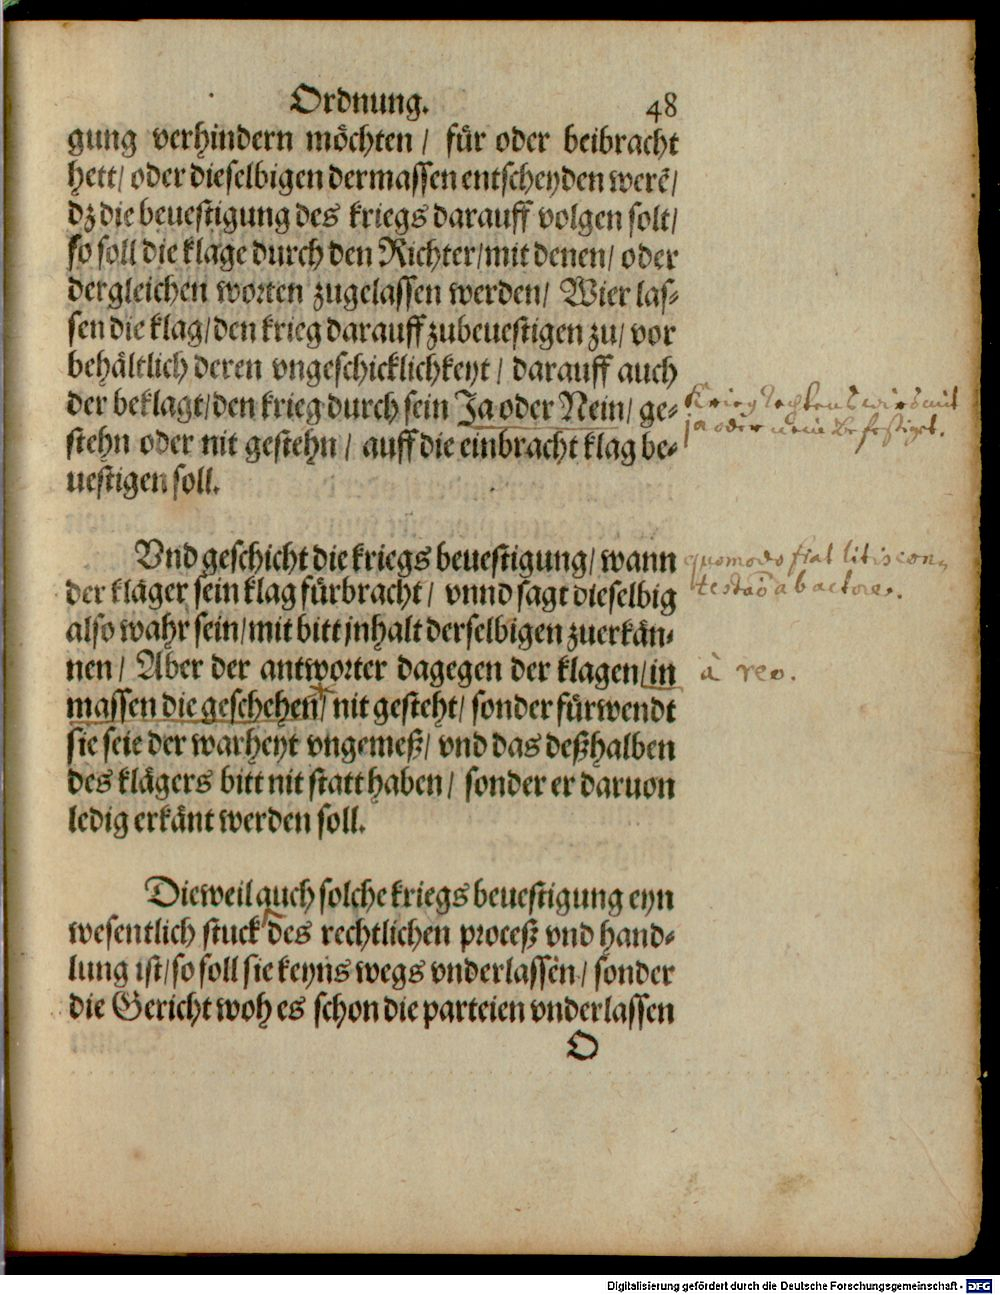 Ordnung. 48
gung verhindern möchten / für oder beibracht
hett / oder dieselbigen dermassen entscheyden werẽ /
dz die beuestigung des kriegs darauff volgen solt /
so soll die klage durch den Richter / mit denen / oder
dergleichen worten zugelassen werden / Wier las⸗
sen die klag / den krieg darauff zubeuestigen zu / vor
behältlich deren vngeschicklichkeyt / darauff auch
der beklagt / den krieg durch sein Ja oder Nein / ge⸗
stehn oder nit gestehn / auff die einbracht klag be⸗
uestigen soll.
Krieg Rechtens wirs mit
ja oder nein befestiget.
Vnd geschicht die kriegs beuestigung / wann
der kläger sein klag fürbracht / vnnd sagt dieselbig
also wahr sein / mit bitt jnhalt derselbigen zuerkän⸗
nen / Aber der antworter dagegen der klagen / in
massen die geschehen / nit gesteht / sonder fürwendt
sie seie der warheyt vngemeß / vnd das deßhalben
des klägers bitt nit statt haben / sonder er daruon
ledig erkänt werden soll.
quomodo fiat litis con,
testaõ ab actore.
à reo.
Dieweil auch solche kriegs beuestigung eyn
wesentlich stuck des rechtlichen proceß vnd hand⸗
lung ist / so soll sie keyns wegs vnderlassen / sonder
die Gericht woh es schon die parteien vnderlassen
O
Digitalisierung gefördert durch die Deutsche Forschungsgemeinschaft - DFG